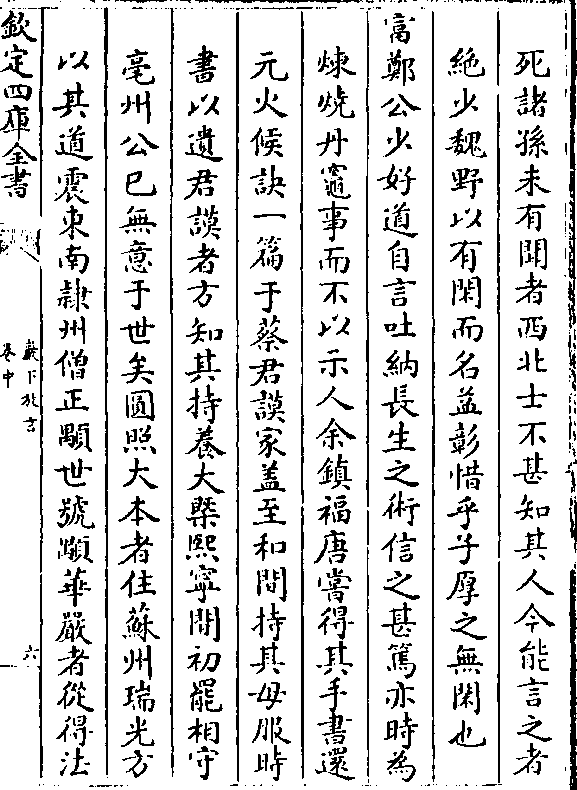 死諸孫未有聞者西北士不甚知其人今能言之者
絶少魏野以有閑而名益彰惜乎子厚之無閑也
富鄭公少好道自言吐納長生之術信之甚篤亦時為
煉燒丹竈事而不以示人余鎮福唐嘗得其手書還
元火候訣一篇于蔡君謨家蓋至和間持其母服時
書以遺君謨者方知其持養大槩熙寧間初罷相守
亳州公已無意于世矣圓照大本者住蘇州瑞光方
以其道震東南隷州僧正顒世號顒華嚴者從得法
欽定四庫全書
巖下放言
卷中
六